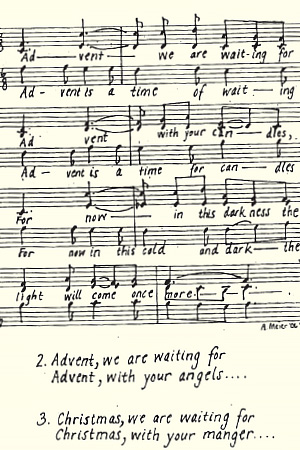 Ad — vent — we are wait-ing for
Ad - vent is a time of wait — ing
Ad vent with your can — dles,
Ad — vent is a time for can — dles
For now — in this dark ness the
For now in this cold and dark — the
light will come once more.
A. Meier
2. Advent, we are waiting for
Advent, with your angels....
3. Christmas, we are waiting for
Christmas, with your manger....